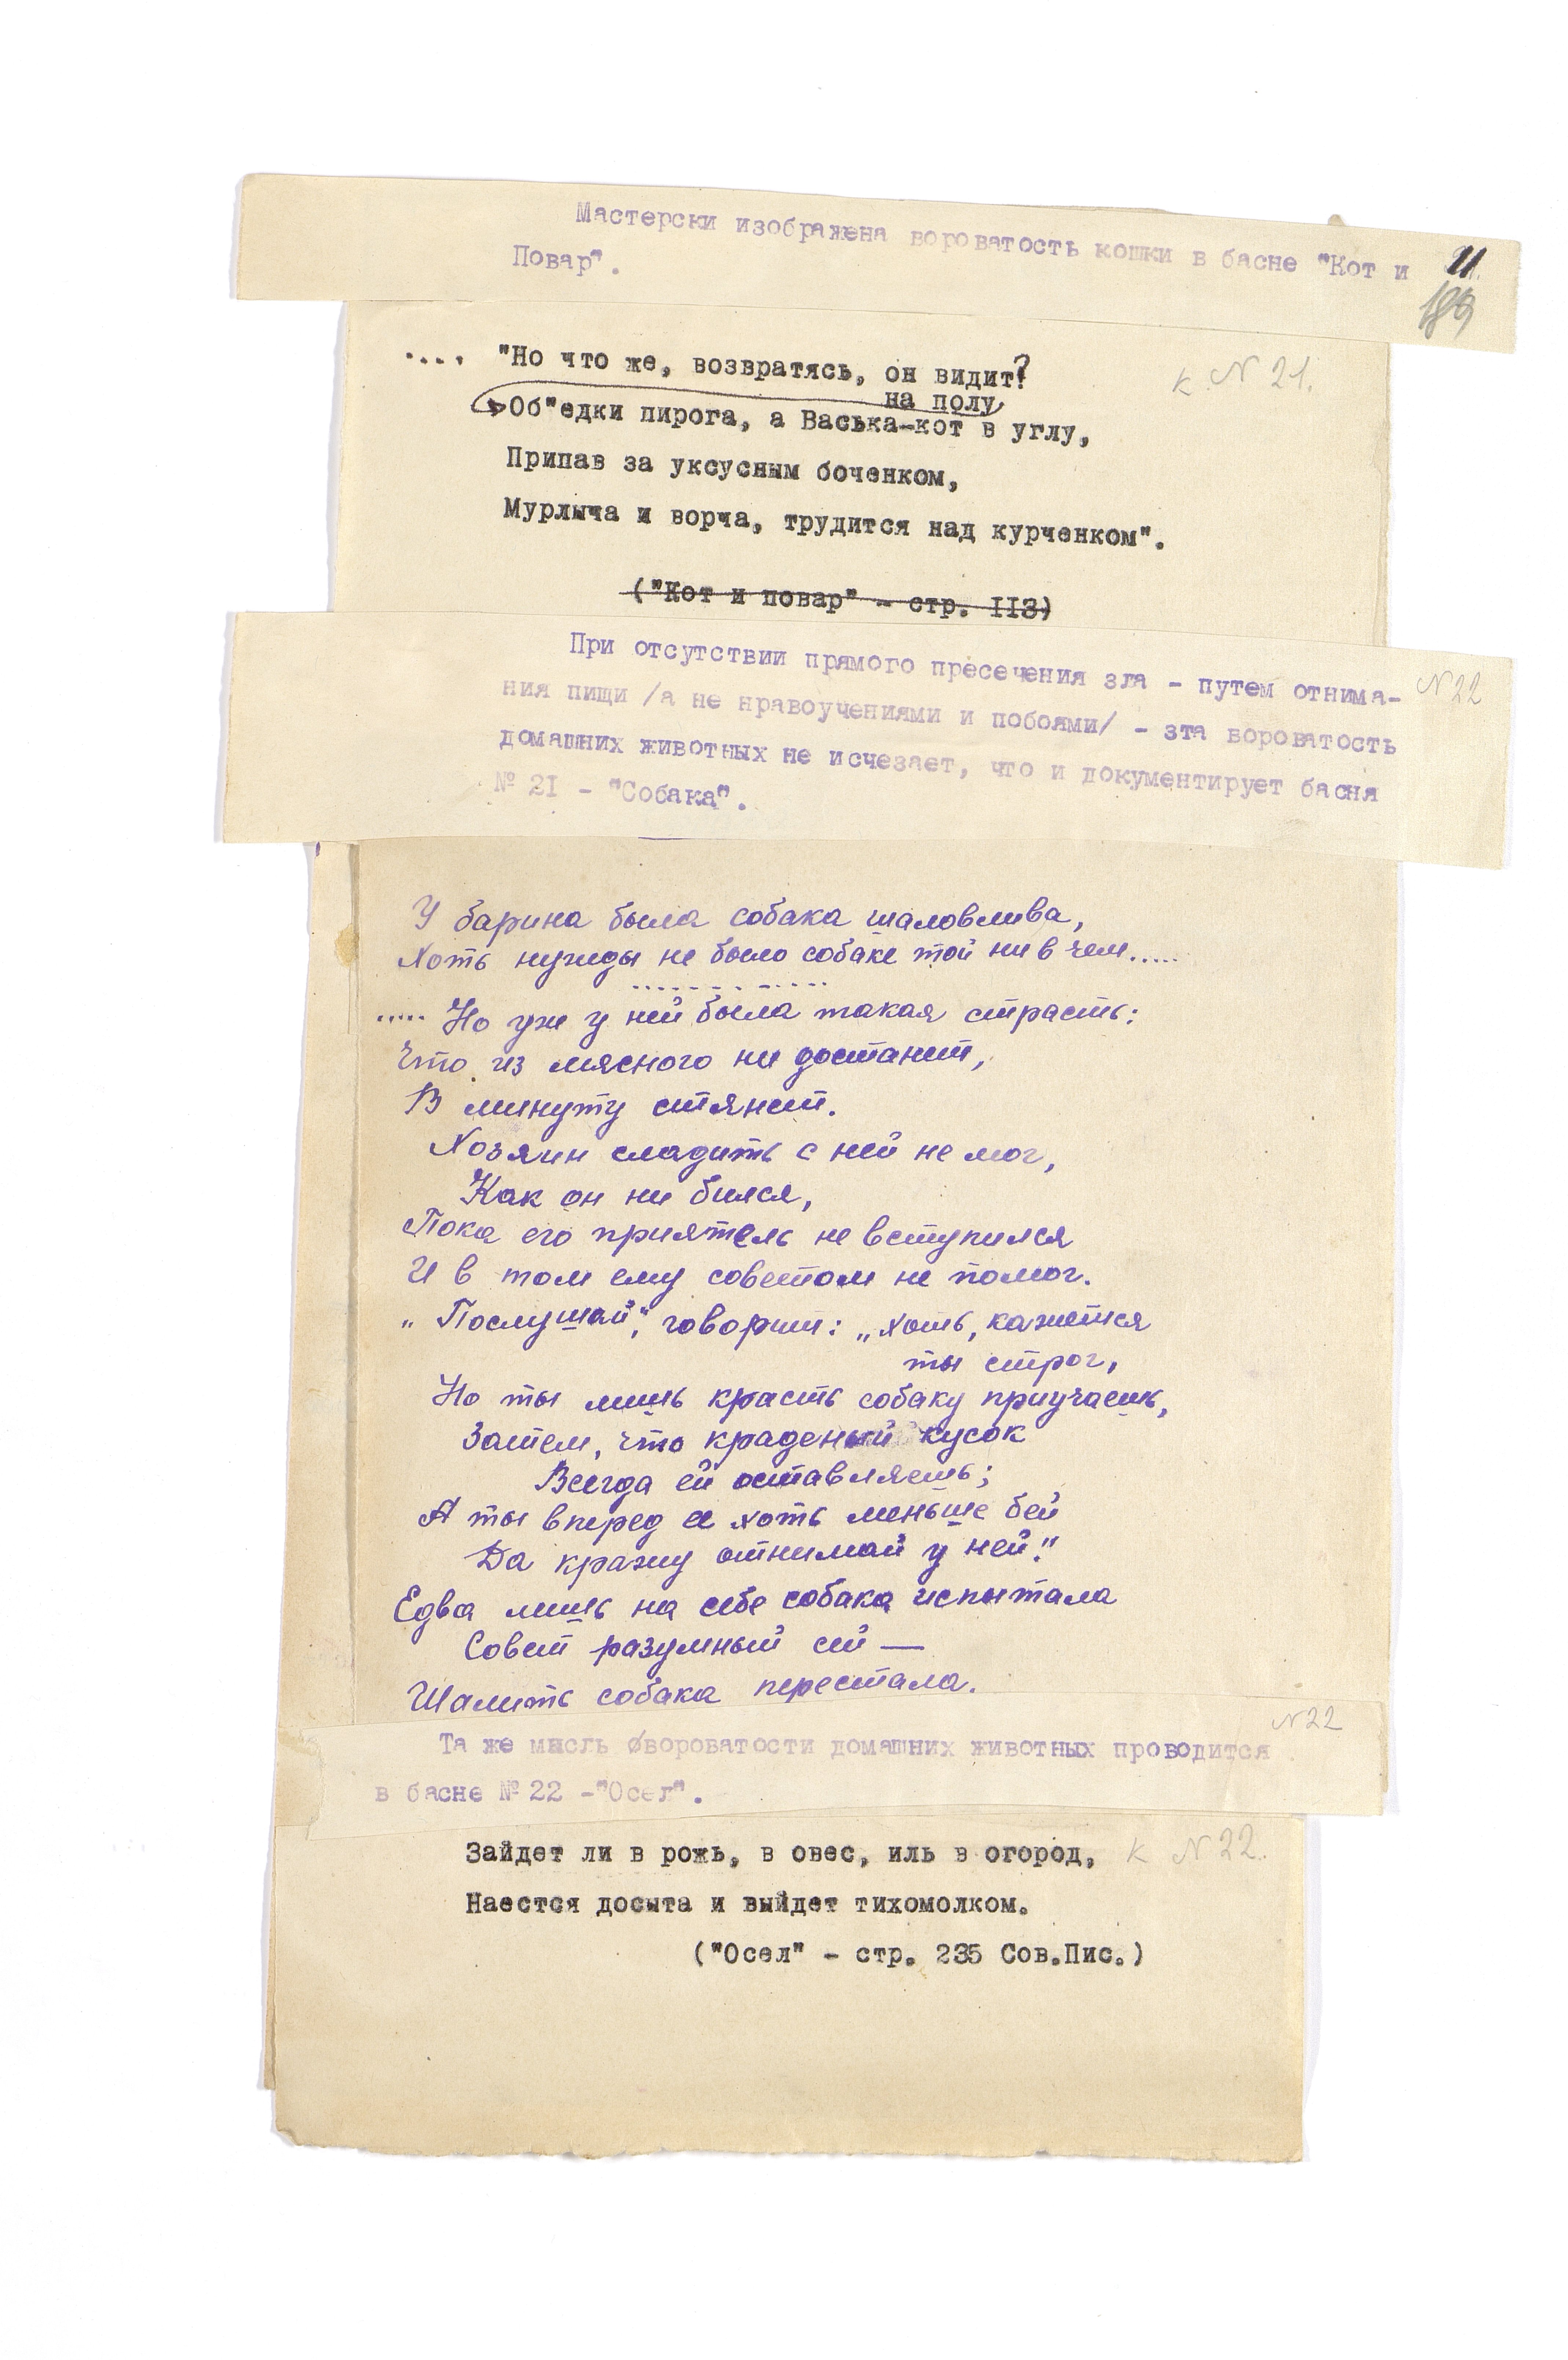 Мастерски изображена вороватость кошки в басне "Кот и
Повар".
21.
189
.... "Но что же, возвратясь, он видит?
к N 21.
на полу
Об"едки пирога, а Васька-кот в углу,
Припав за уксусным боченком,
Мурлыча и ворча, трудится над курченком".
("Кот и повар" - стр. II3)
При отсутствии прямого пресечения зла - путем отнима-
N 22
ния пищи /а не нравоучениями и побоями/ - эта вороватость
домашних животных не исчезает, что и документирует басня
№ 2I - "Собака".
У барина была собака шаловлива,
Хоть нужды не было собаке той ни в чем.....
.............
..... Но уж у ней была такая страсть:
Что из мясного ни достанет,
В минуту стянет.
Хозяин сладить с ней не мог,
Как он ни бился,
Пока его приятель не вступился
И в том ему советом не помог.
„Послушай", говорит: „хоть, кажется
ты строг,
Но ты лишь красть собаку приучаешь,
Затем, что краденый кусок
Всегда ей оставляешь;
А ты вперед ее хоть меньше бей
Да кражу отнимай у ней."
Едва лишь на себе собака испытала
Совет разумный сей —
Шалить собака перестала.
N 22
Та же мысль о вороватости домашних животных проводится
в басне № 22 -"Осел".
Зайдет ли в рожь, в овес, иль в огород,
к N 22.
Наестся досыта и выйдет тихомолком.
("Осел" - стр. 235 Сов.Пис.)